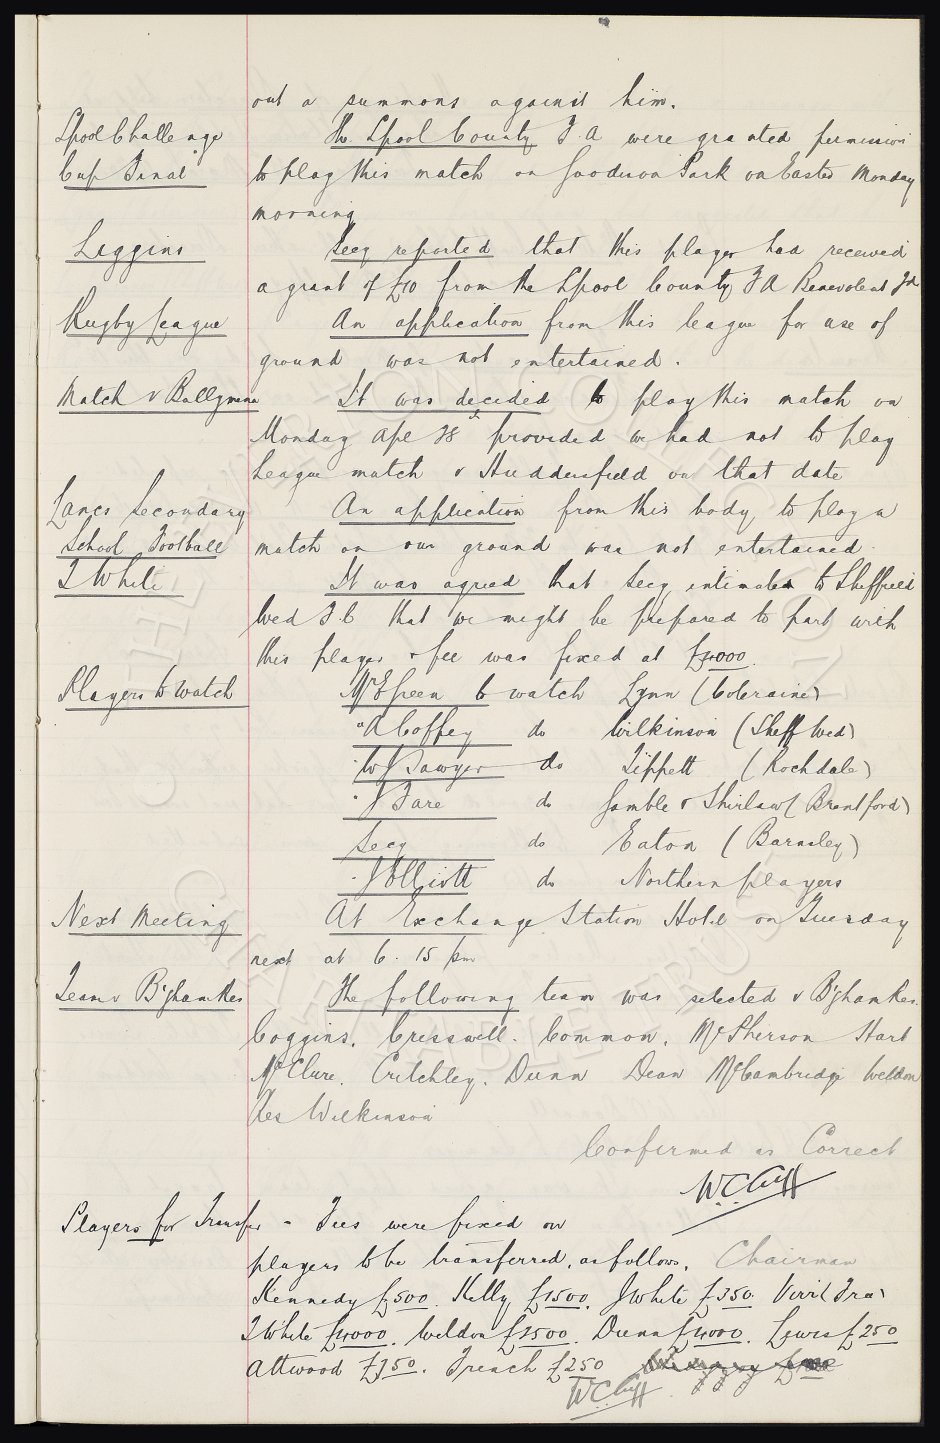 out a summons against him.
L'pool Challenge
Cup Final
The L'pool County F.A were granted permission
to play this match on Goodison Park on Easter Monday
morning
Liggins
Secy reported that this player had received
a grant of £10 from the L'pool County F A Benevolent Fd
Rugby League
An application from this league for use of
ground was not entertained.
Match v Ballymena
It was decided to play this match on
Monday Apl 28th provided we had not to play
League match v Huddersfield on that date
Lancs Secondary
School Football
An application from this body to play a
match on our ground was not entertained.
T White
It was agreed that Secy intimate to Sheffield
Wed F.C that we might be prepared to part with
this player & fee was fixed at £4000.
Players to watch
Mr E Green to watch Lynn (Coleraine)
" A Coffey do Wilkinson (Sheff Wed)
" W Sawyer do Tippett (Rochdale)
" J Fare do Gamble & Shirlaw (Brentford)
Secy do Eaton (Barnsley)
" J Elliott do Northern players
Next Meeting
At Exchange Station Hotel on Tuesday
next at 6.15 pm
Team v B'gham Res
The following team was selected v B'gham Res.
Coggins. Cresswell. Common. McPherson Hart
McClure. Critchley. Dunn Dean McCambridge Weldon
Res Wilkinson
Confirmed as Correct
W C Cuff
Players for Transfer - Fees were fixed on
players to be transferred, as follows. Chairman
Kennedy £500. Kelly £1500. J White £350. Virr (Free)
T White £4000. Weldon £2500. Dunn £4000. Lewis £250
Attwood £750. French £250
W C Cuff